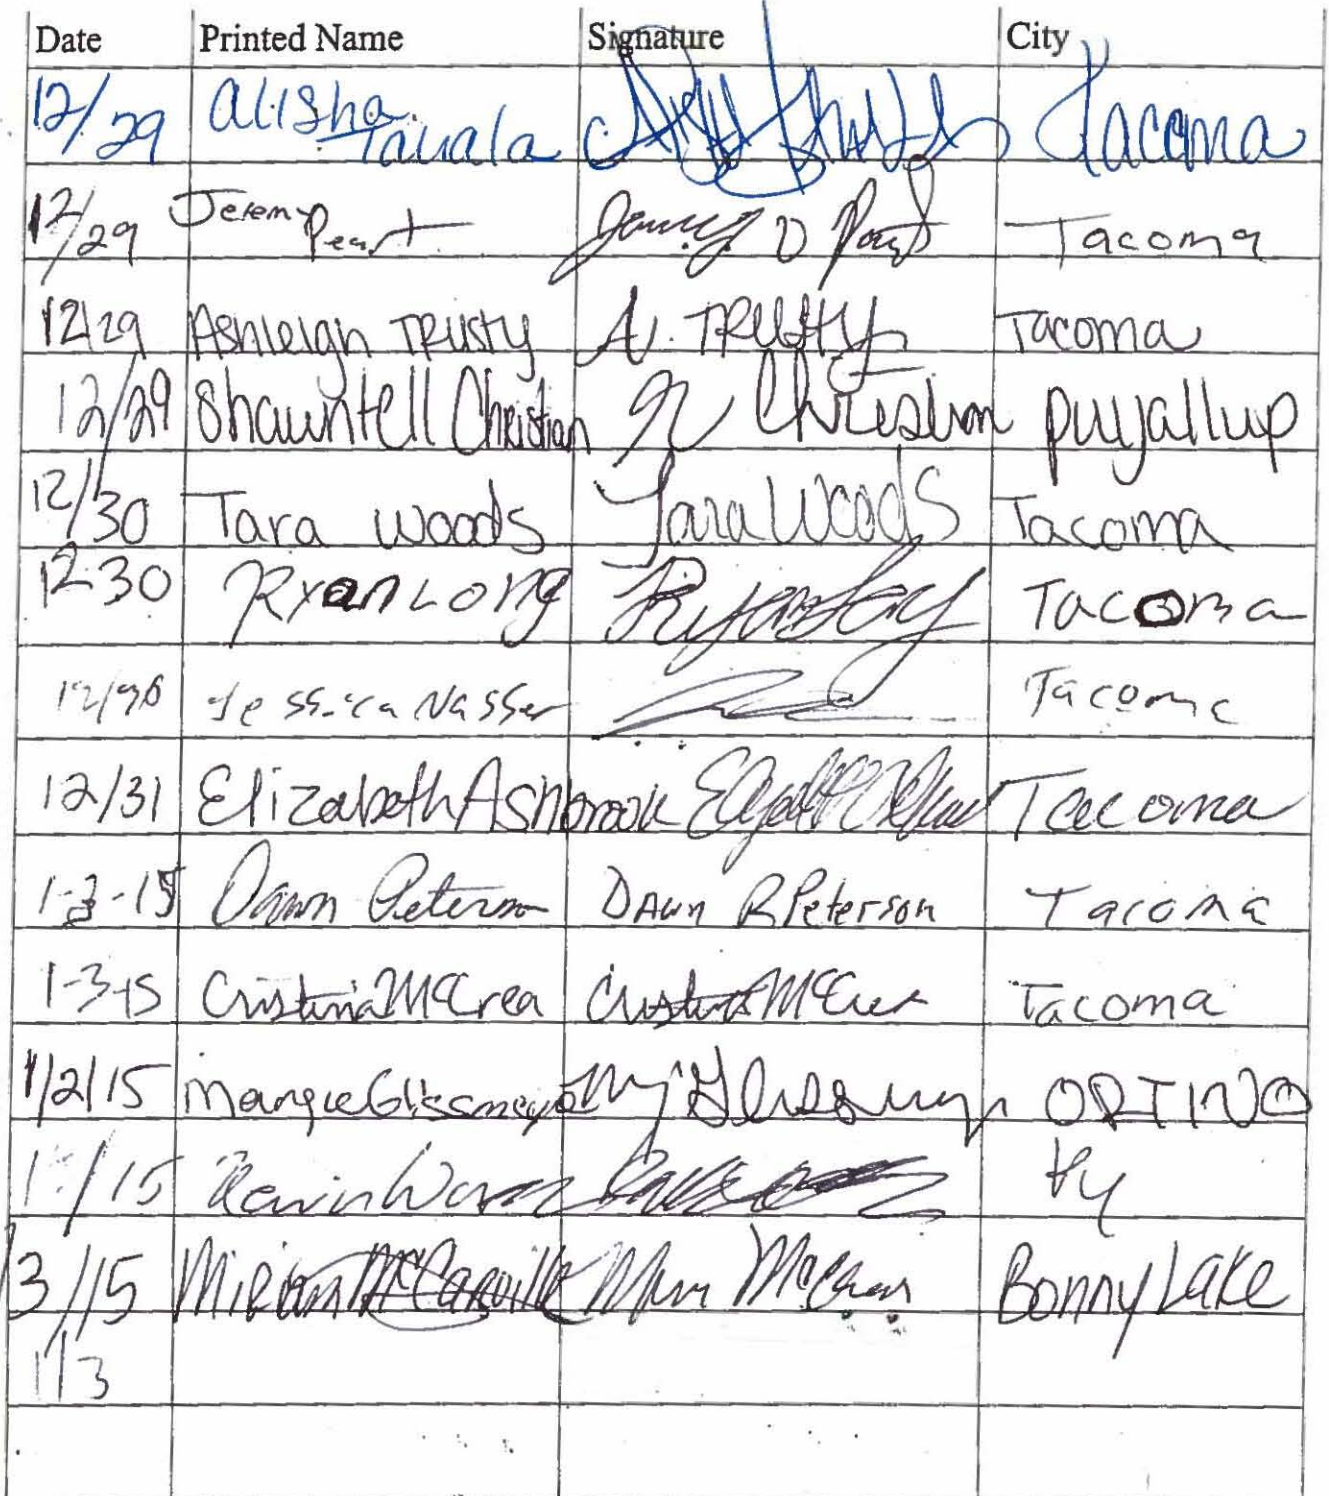 Date Printed Name Signature City
12/29 Alisha Tauala Tacoma
12/29 Jeremy Peart Tacoma
12/29 Ashleigh TRUSTY A. TRUSTY Tacoma
12/29 Shauntell Christian Christian puyallup
12/30 Tara Woods Tara Woods Tacoma
12-30 Ryan Long Ryan Tacoma
Jessica Nasser Tacoma
12/31 Elizabeth Ashbrook Tacoma
Dawn Peterson Dawn R Peterson Tacoma
1-3-15 Cristina McCrea Cristina McCrea Tacoma
1/2/15 Margie
Kevin
3/15 Bonny Lake
1/3